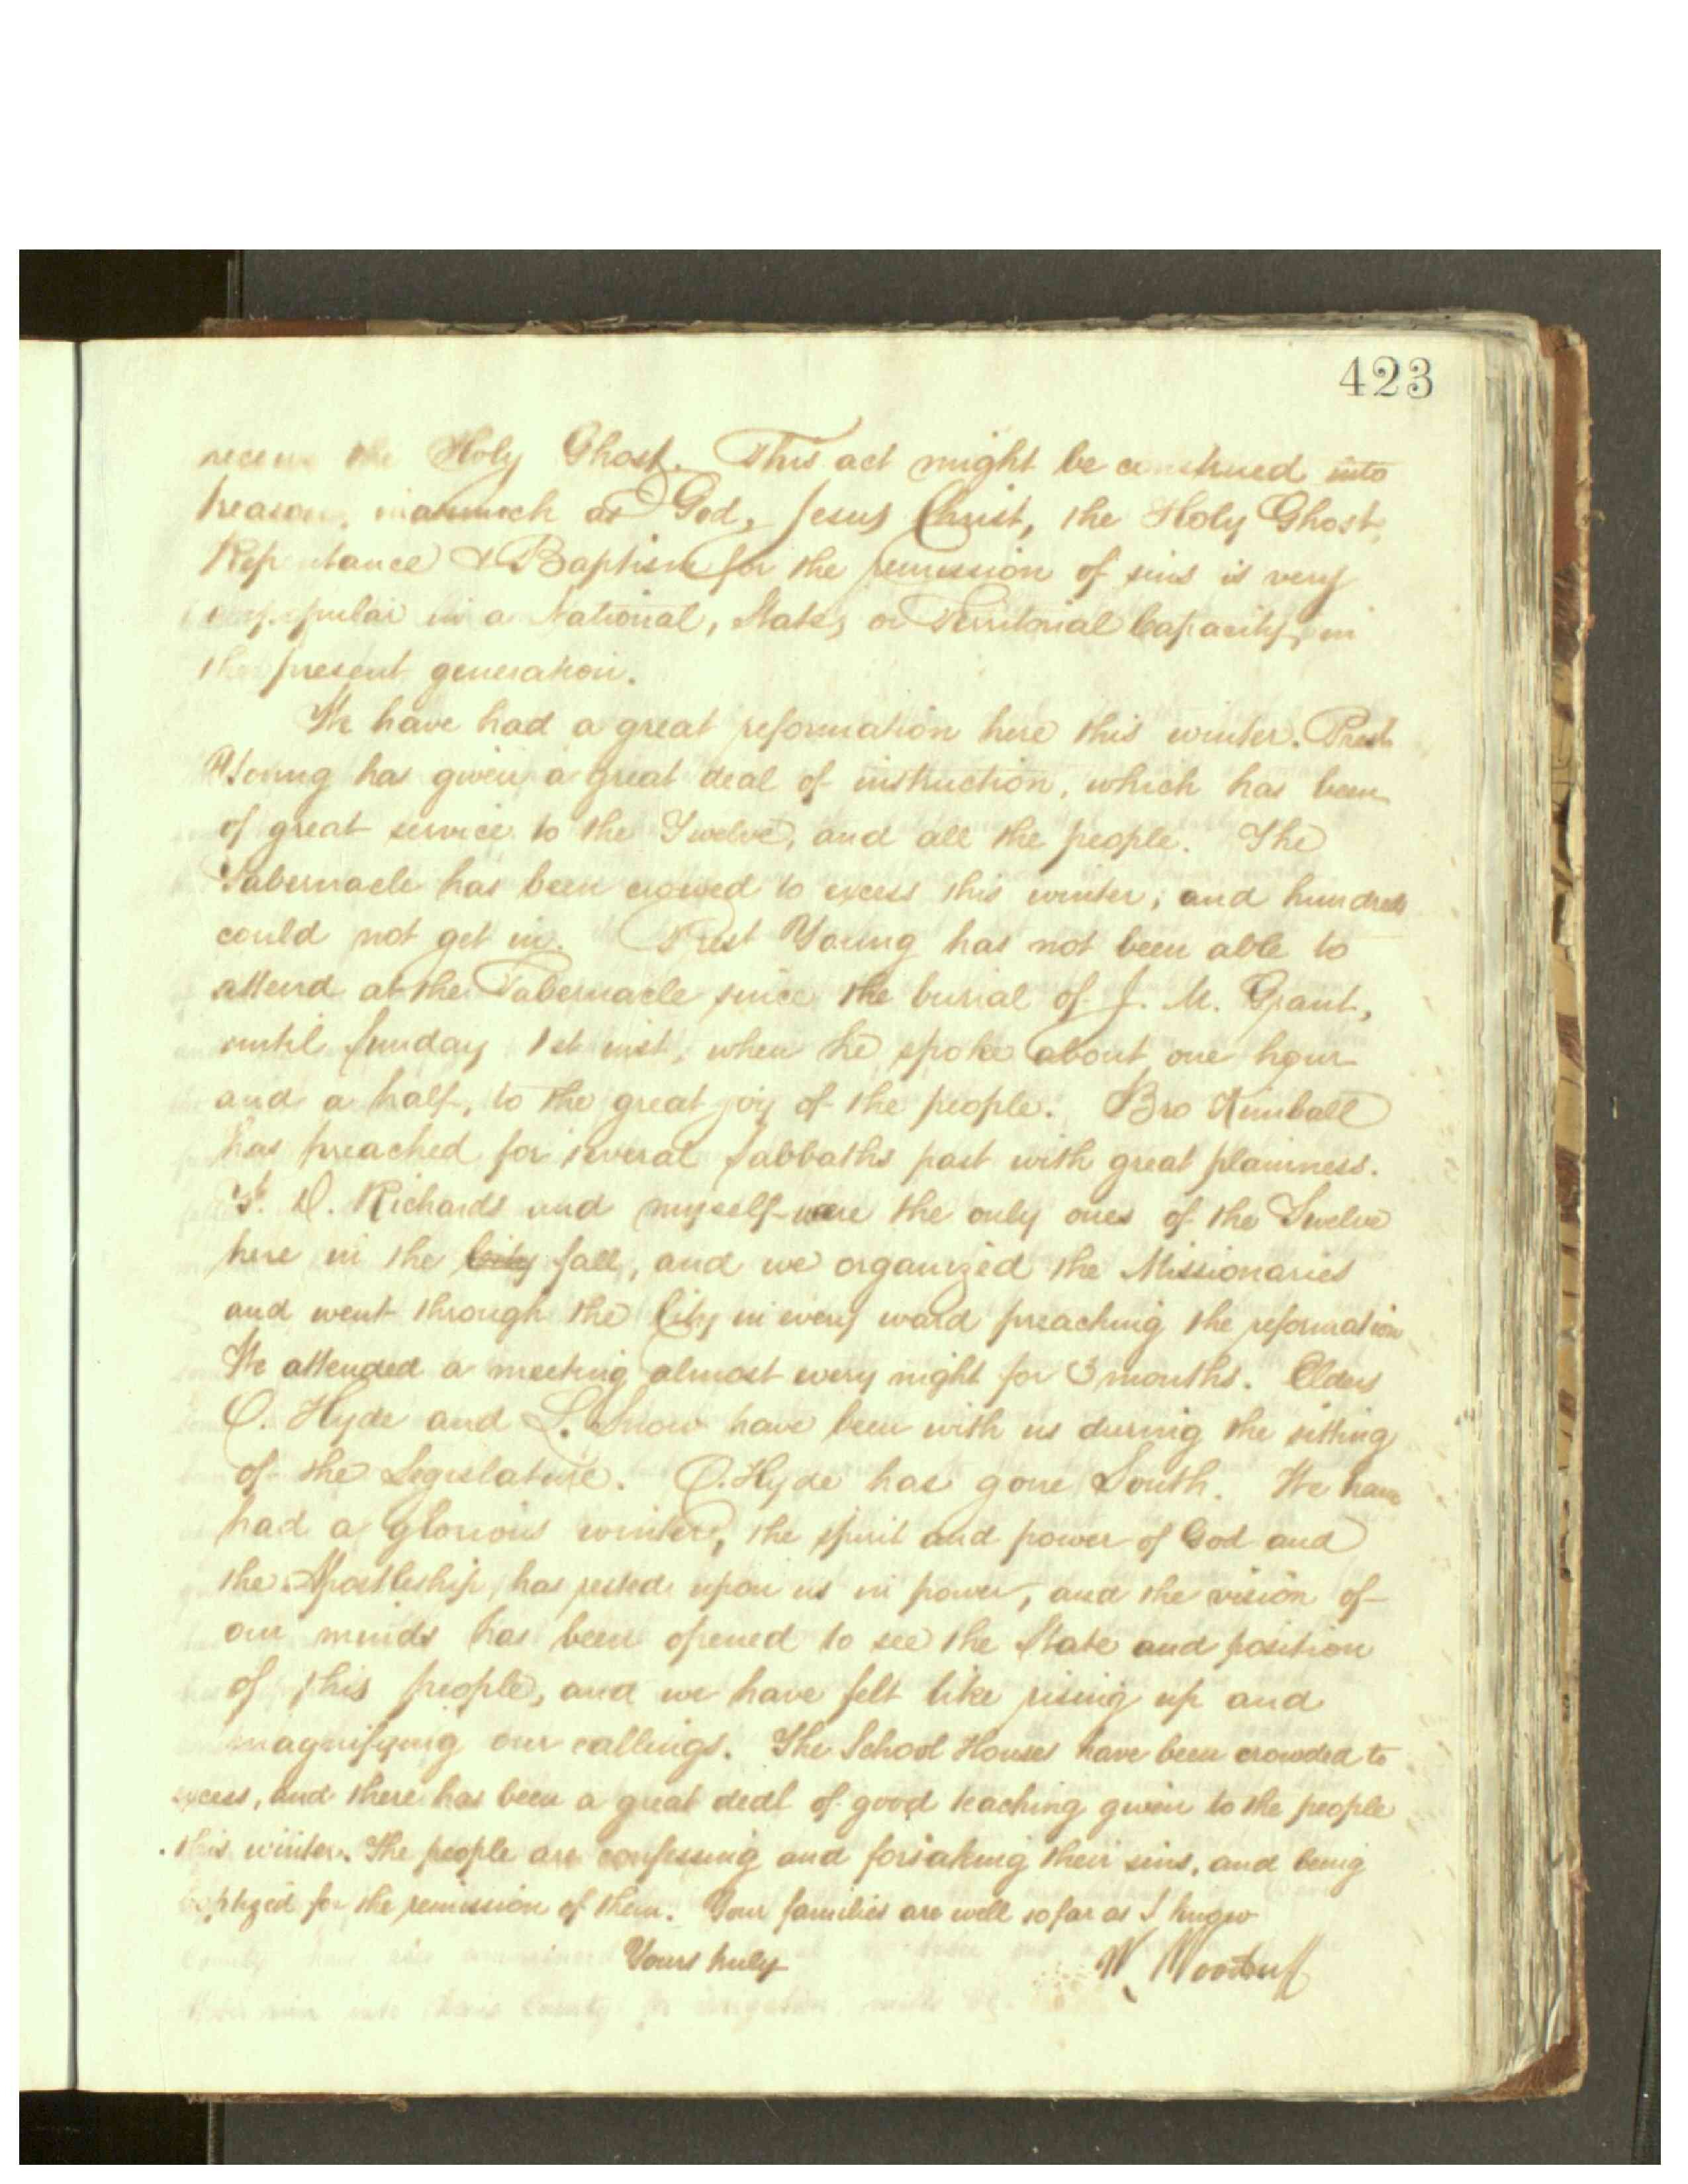 423
receive the Holy Ghost. This act might be construed into
treason, inasmuch as God, Jesus Christ, the Holy Ghost,
Repentance & Baptism for the remission of sins is very
unpopular in a National, State, or Territorial Capacity, in
the present generation.
We have had a great reformation here this winter. Prest
Young has given a great deal of instruction, which has been
of great service to the Twelve, and all the people. The
Tabernacle has been crowed to excess this winter, and hundreds
could not get in. Prest Young has not been able to
attend at the Tabernacle since the burial of J. M. Grant,
until Sunday 1st inst, when he spoke about one hour
and a half, to the great joy of the people. Bro Kimball
has preached for several Sabbaths past with great plainness.
F. D. Richards and myself were the only ones of the Twelve
here in the City fall, and we organized the Missionaries
and went through the City in every ward preaching the reformation
We attended a meeting almost every night for 3 months. Elders
O. Hyde and L. Snow have been with us during the sitting
of the Legislature. O. Hyde has gone South. We have
had a glorious winter, the spirit and power of God and
the Apostleship, has rested upon us in power, and the vision of
our minds has been opened to see the State and position
of this people, and we have felt like rising up and
magnifying our callings. The School Houses have been crowded to
excess, and there has been a great deal of good teaching given to the people
this winter. The people are confessing and forsaking their sins, and being
baptized for the remission of them. Your families are well so far as I know
Yours truly W. Woodruff